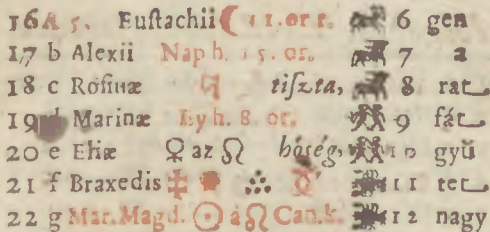 16 A 5. Euſtachii ☾ 11. or 1. 6 gen
17 b Alexii Nap h. 15. or. 7 a
18 c Roſinæ tiſzta, 8 rat
19 d Marinæ Ey h. 8. or. 9 fát
20 e Eliæ ♀ az ♌ hőség, 10 gyü
21 f Braxedis 11 tet
22 g Mar. Magd. ☉ á ♌ Can. k. 12 nagy